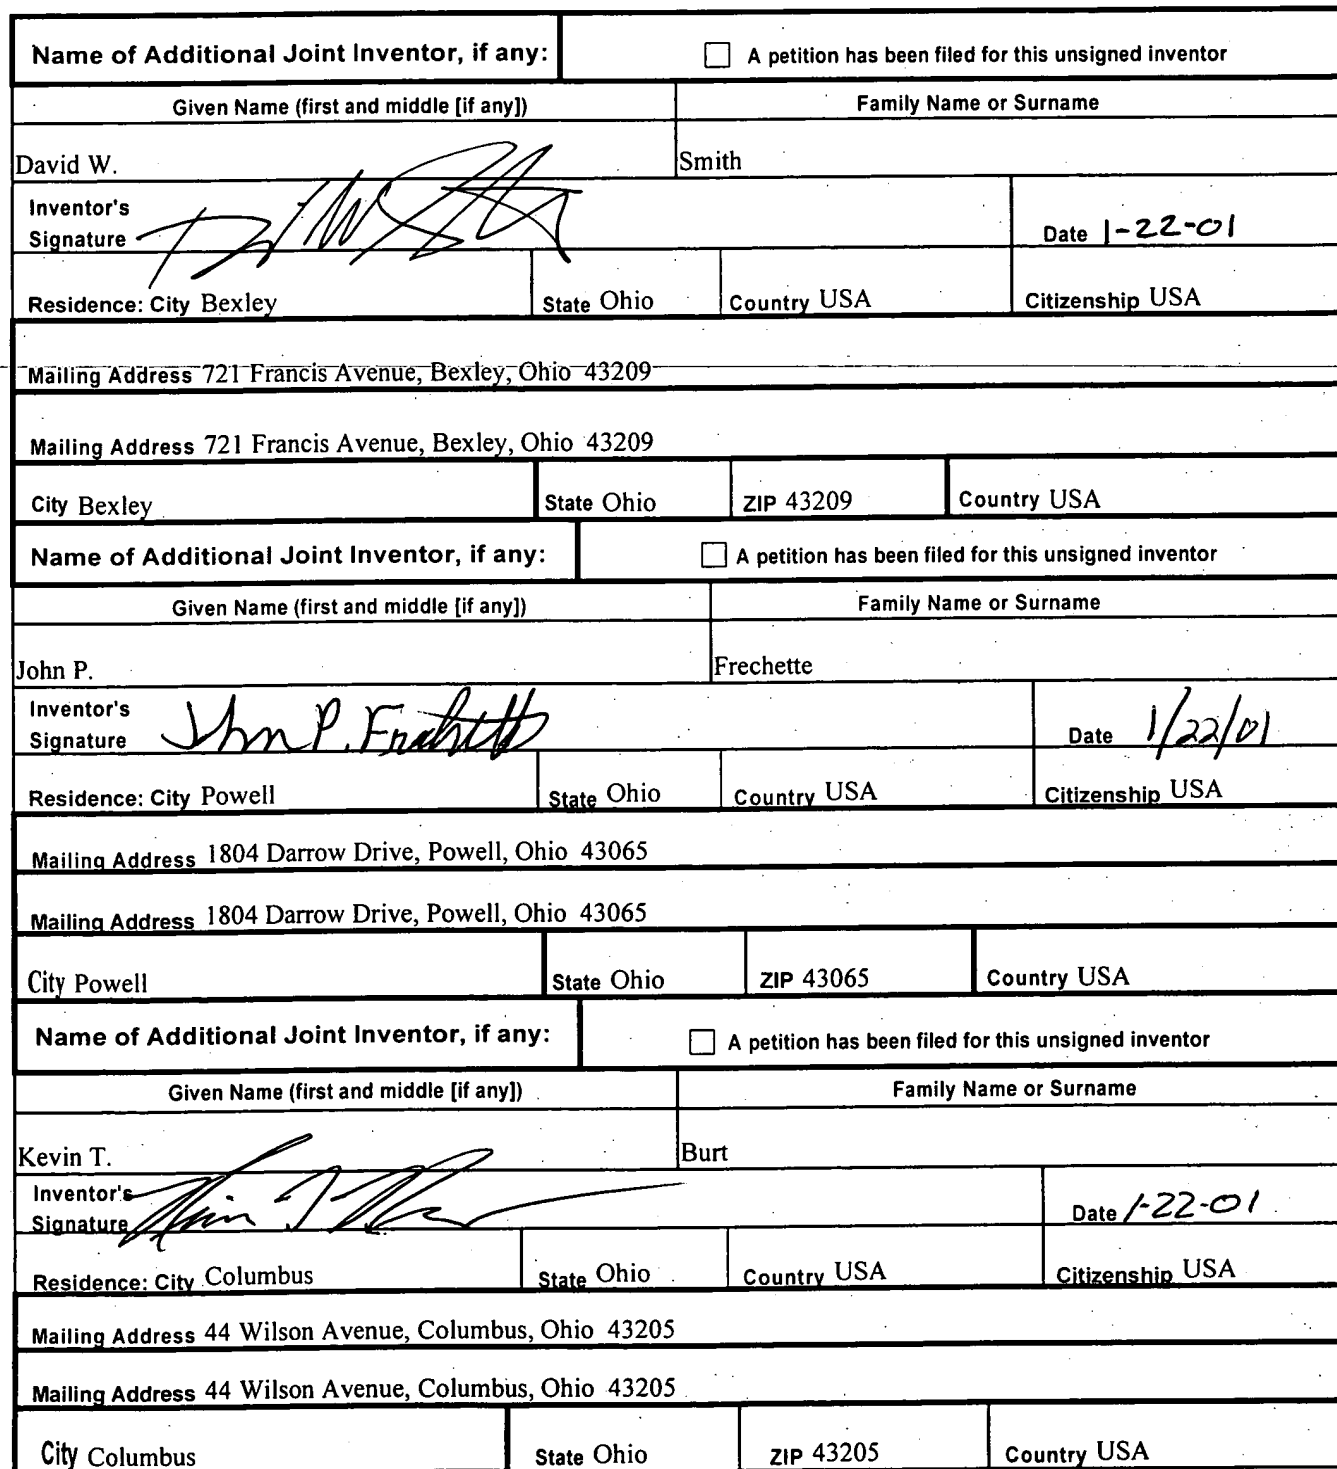 Name of Additional Joint Inventor, if any: A petition has been filed for this unsigned inventor
Given Name (first and middle [if any]) Family Name or Surname
David W. Smith
Inventor's
Signature Date 1-22-01
Residence: City Bexley State Ohio Country USA Citizenship USA
Mailing Address 721 Francis Avenue, Bexley, Ohio 43209
Mailing Address 721 Francis Avenue, Bexley, Ohio 43209
City Bexley State Ohio ZIP 43209 Country USA
Name of Additional Joint Inventor, if any: A petition has been filed for this unsigned inventor
Given Name (first and middle [if any]) Family Name or Surname
John P. Frechette
Inventor's
Signature John P. Frechette Date 1/22/01
Residence: City Powell State Ohio Country USA Citizenship USA
Mailing Address 1804 Darrow Drive, Powell, Ohio 43065
Mailing Address 1804 Darrow Drive, Powell, Ohio 43065
City Powell State Ohio ZIP 43065 Country USA
Name of Additional Joint Inventor, if any: A petition has been filed for this unsigned inventor
Given Name (first and middle [if any]) Family Name or Surname
Kevin T. Burt
Inventor's
Signature Date 1-22-01
Residence: City Columbus State Ohio Country USA Citizenship USA
Mailing Address 44 Wilson Avenue, Columbus, Ohio 43205
Mailing Address 44 Wilson Avenue, Columbus, Ohio 43205
City Columbus State Ohio ZIP 43205 Country USA